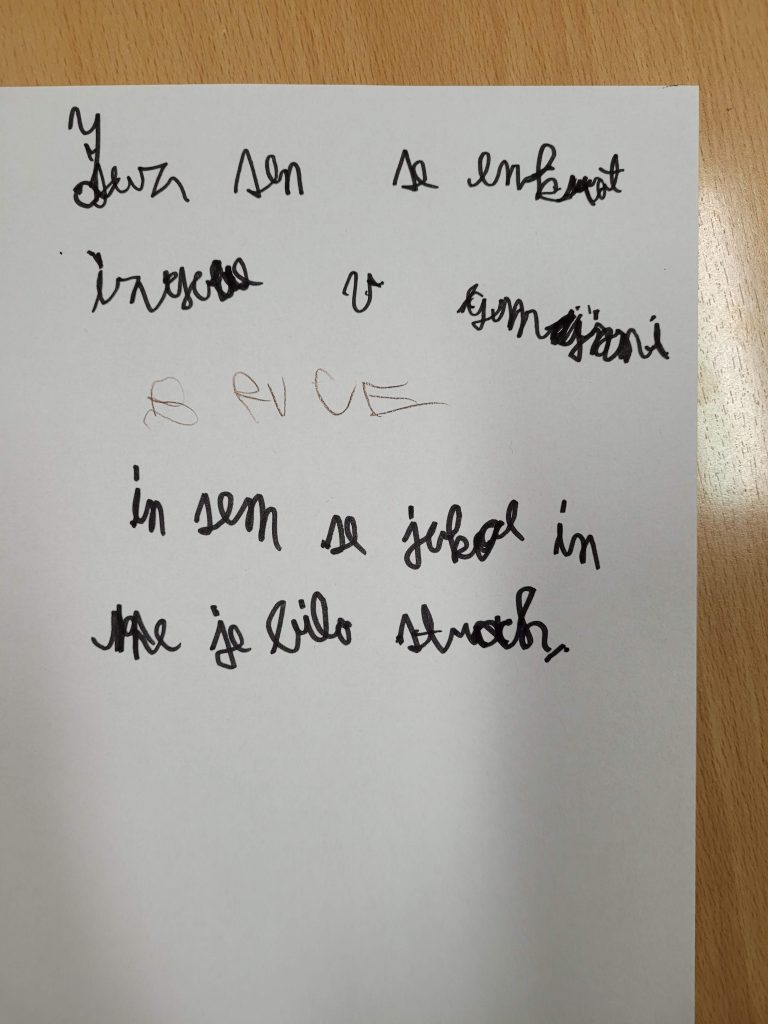 Jaz sen se enkrat
izgubu v gmajni
BRUCE
in sem se jokal in
me je bilo strach.